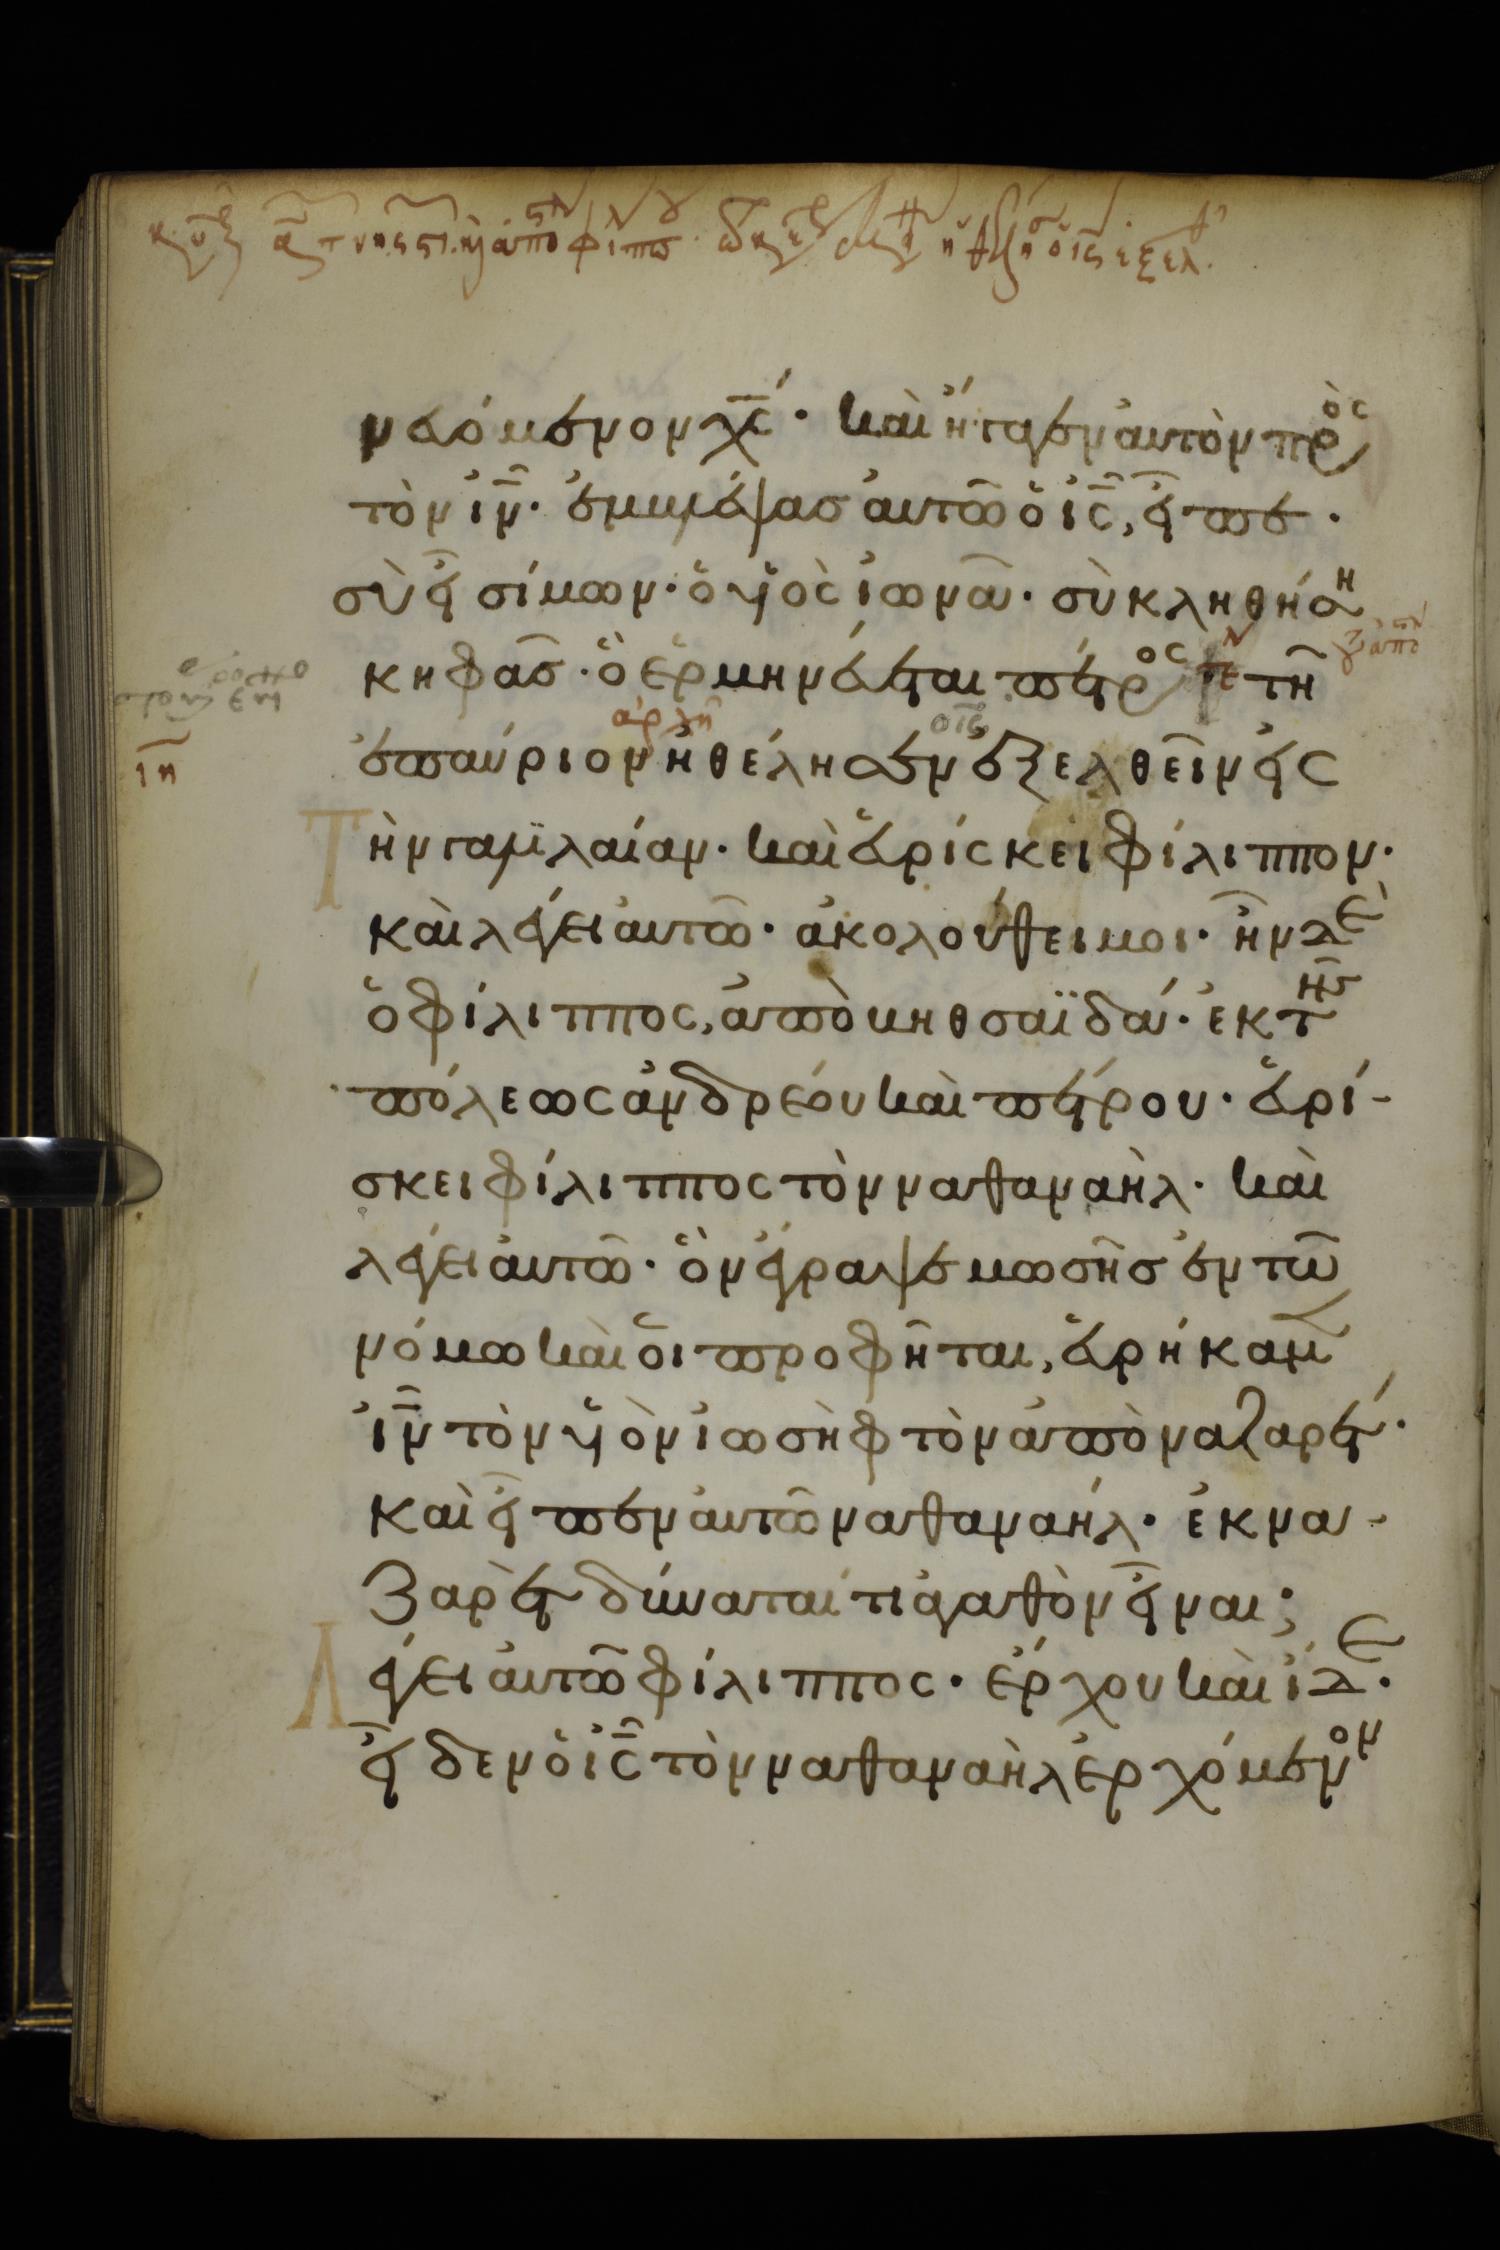 νευόμενον χς́· καὶ ἤγαγεν αὐτὸν πρὸς
τὸν ἰν̅· ἐμβλέψας αὐτῶ ὁ ις̅, εἶπε·
σὺ εἶ σίμων· ὁ υἱὸς ἰωνᾶ· σὺ κληθήση
κηφᾶς· ὃ ἑρμηνεύεται πέτρος τῆ
ἀρχὴ
ἐπαύριον ἠθέλησεν ἐξελθεῖν εἰς
ιη
Τὴν γαλιλαίαν· καὶ εὑρίσκει φίλιππον·
καὶ λέγει αὐτῶ· ἀκολούθει μοι· ἦν δὲ
ὁ φίλιππος, ἀπὸ βηθσαϊδά· ἐκ τῆς
πόλεως ἀνδρέου καὶ πέτρου· εὑρί-
σκει φίλιππος τὸν ναθαναὴλ· καὶ
λέγει αὐτῶ· ὃν ἔγραψε μωσῆς ἐν τῶ
νόμω καὶ οἱ προφῆται, εὑρήκαμεν
ἰν̅ τὸν υἱὸν ἰωσὴφ τὸν ἀπὸ ναζαρέτ·
καὶ εἶπεν αὐτῶ ναθαναήλ· ἐκ να-
ζαρὲτ δύναταί τι ἀγαθὸν εἶναι;
Λέγει αὐτῶ φίλιππος· ἔρχου καὶ ἴδε·
εἶδεν ὁ ις̅ τὸν ναθαναὴλ ἐρχόμενον